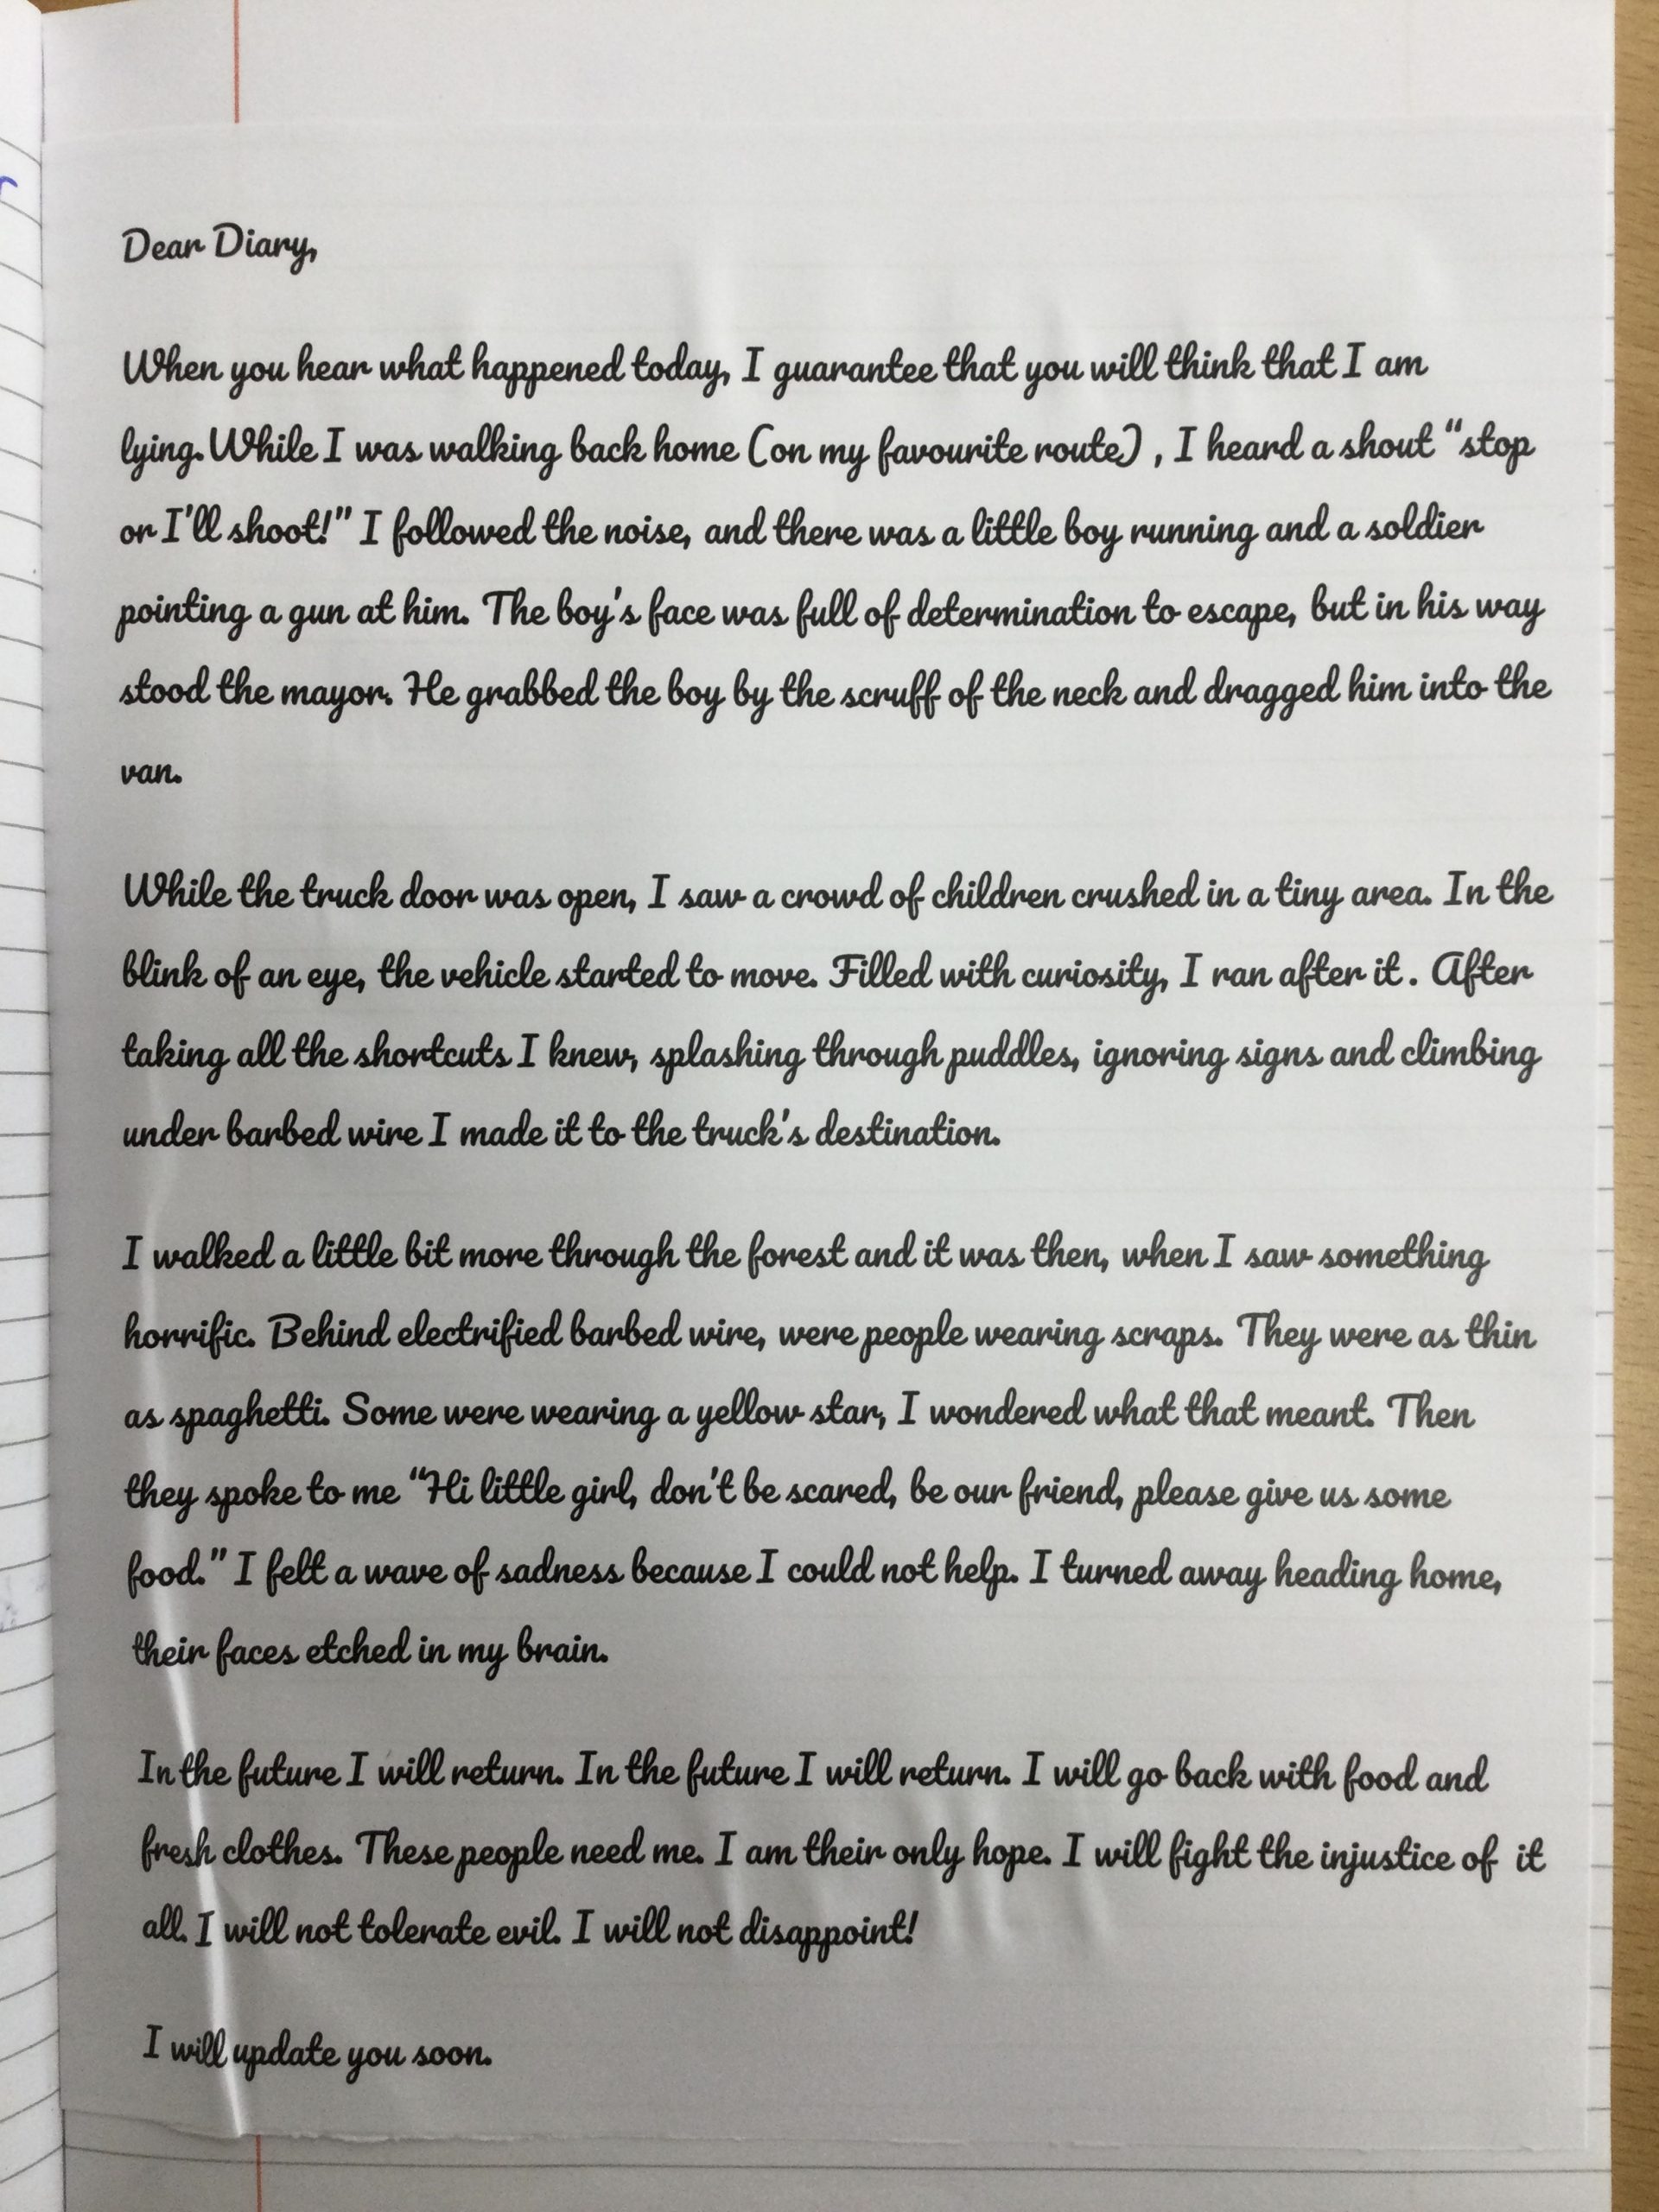 Dear Diary,
When you hear what happened today, I guarantee that you will think that I am
lying. While I was walking back home (on my favourite route) , I heard a shout “stop
or I'll shoot!” I followed the noise, and there was a little boy running and a soldier
pointing a gun at him. The boy's face was full of determination to escape, but in his way
stood the mayor. He grabbed the boy by the scruff of the neck and dragged him into the
van.
While the truck door was open, I saw a crowd of children crushed in a tiny area. In the
blink of an eye, the vehicle started to move. Filled with curiosity, I ran after it . After
taking all the shortcuts I knew, splashing through puddles, ignoring signs and climbing
under barbed wire I made it to the truck's destination.
I walked a little bit more through the forest and it was then, when I saw something
horrific. Behind electrified barbed wire, were people wearing scraps. They were as thin
as spaghetti. Some were wearing a yellow star, I wondered what that meant. Then
they spoke to me “Hi little girl, don't be scared, be our friend, please give us some
food.” I felt a wave of sadness because I could not help. I turned away heading home,
their faces etched in my brain.
In the future I will return. In the future I will return. I will go back with food and
fresh clothes. These people need me. I am their only hope. I will fight the injustice of it
all. I will not tolerate evil. I will not disappoint!
I will update you soon.